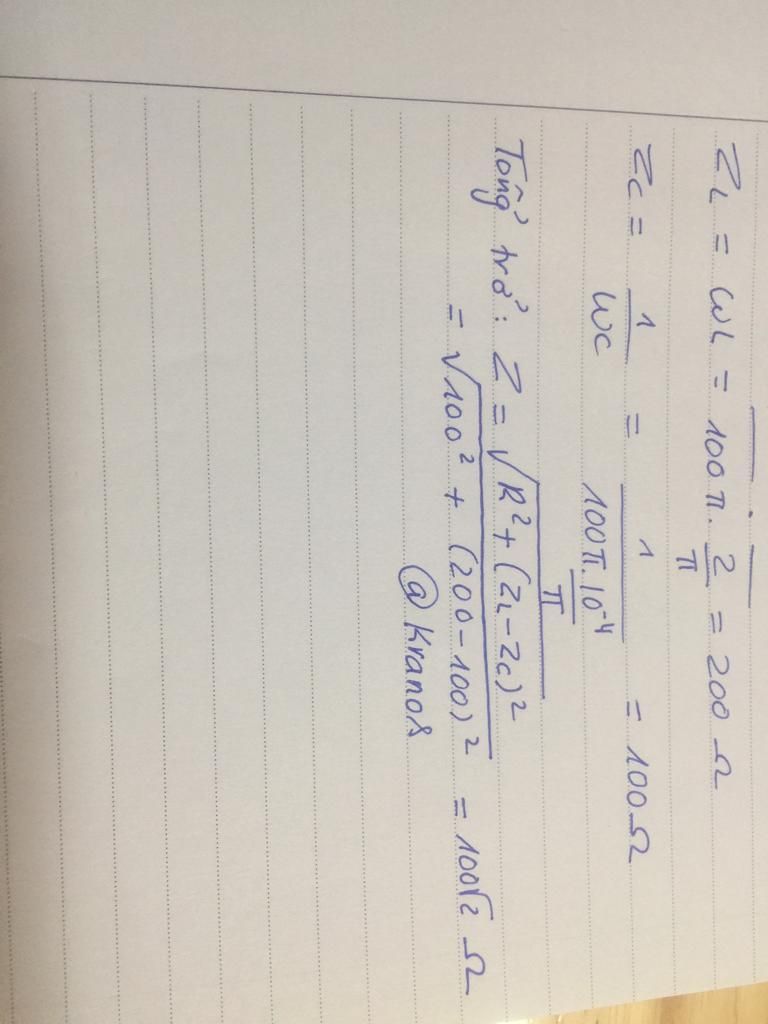 Z_L = ωL = 100π. 2/π = 200 Ω
Z_C = 1/ωC = 1/(100π. 10⁻⁴/π) = 100 Ω
Tổng trở: Z = √(R² + (Z_L - Z_C)²)
= √(100² + (200 - 100)²) = 100√2 Ω
@Kranos